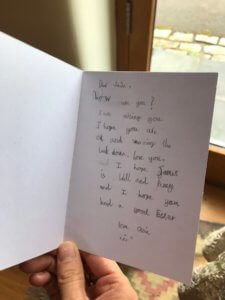 Dear
How are you?
I am missing you
I hope you are
ok and surviving the
lock down, love you,
and I hope James
is Well and happy
and I hope you
had a good Easter
love